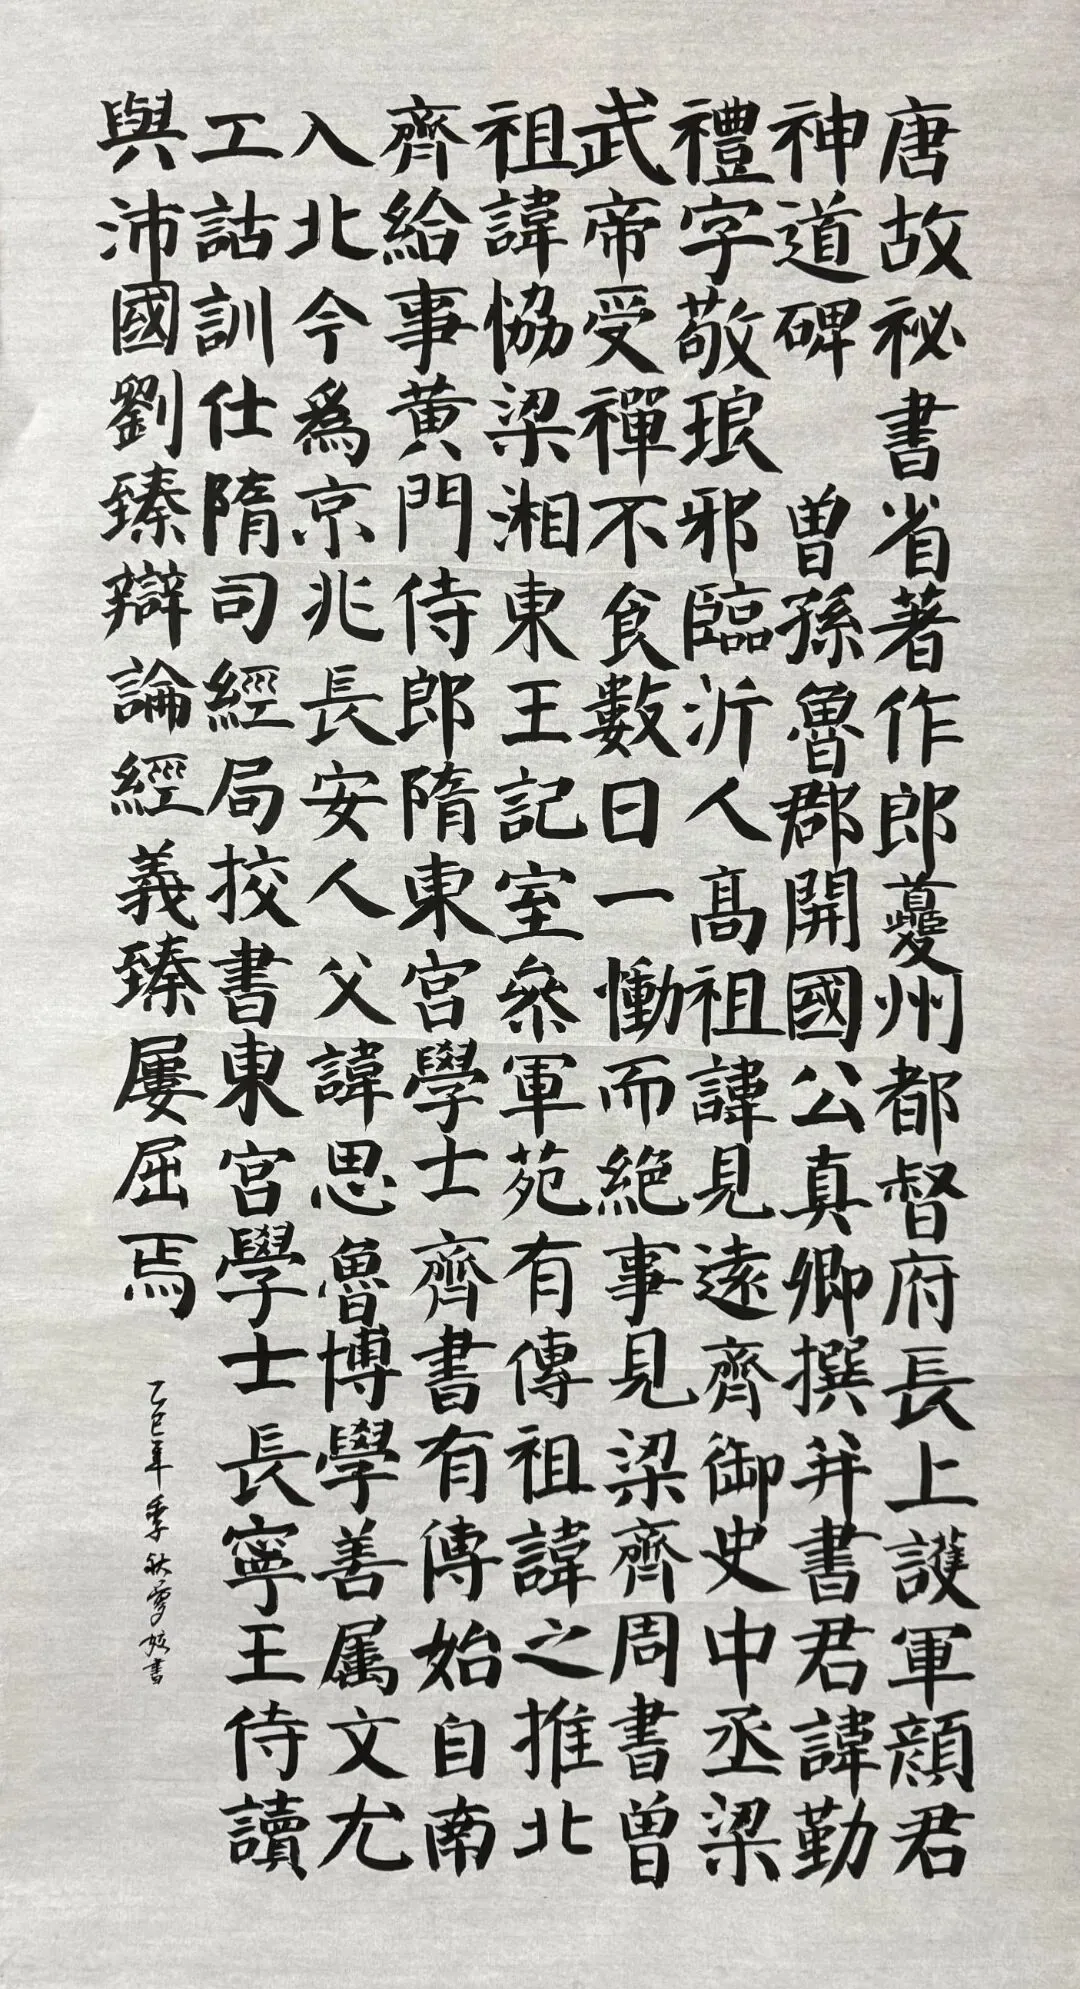 唐故祕書省著作郎夔州都督府長上護軍顔君
神道碑 曽孫魯郡開國公真卿撰并書君諱勤
禮字敬琅邪臨沂人髙祖諱見遠齊御史中丞梁
武帝受禪不食數日一慟而絶事見梁齊周書曽
祖諱恊梁湘東王記室叅軍苑有傳祖諱之推北
齊給事黄門侍郎隋東宮學士齊書有傳始自南
入北今爲京兆長安人父諱思魯博學善属文尤
工詁訓仕隋司經局挍書東宮學士長寧王侍讀
與沛國劉臻辯論經義臻屢屈焉
乙巳年季秋 書